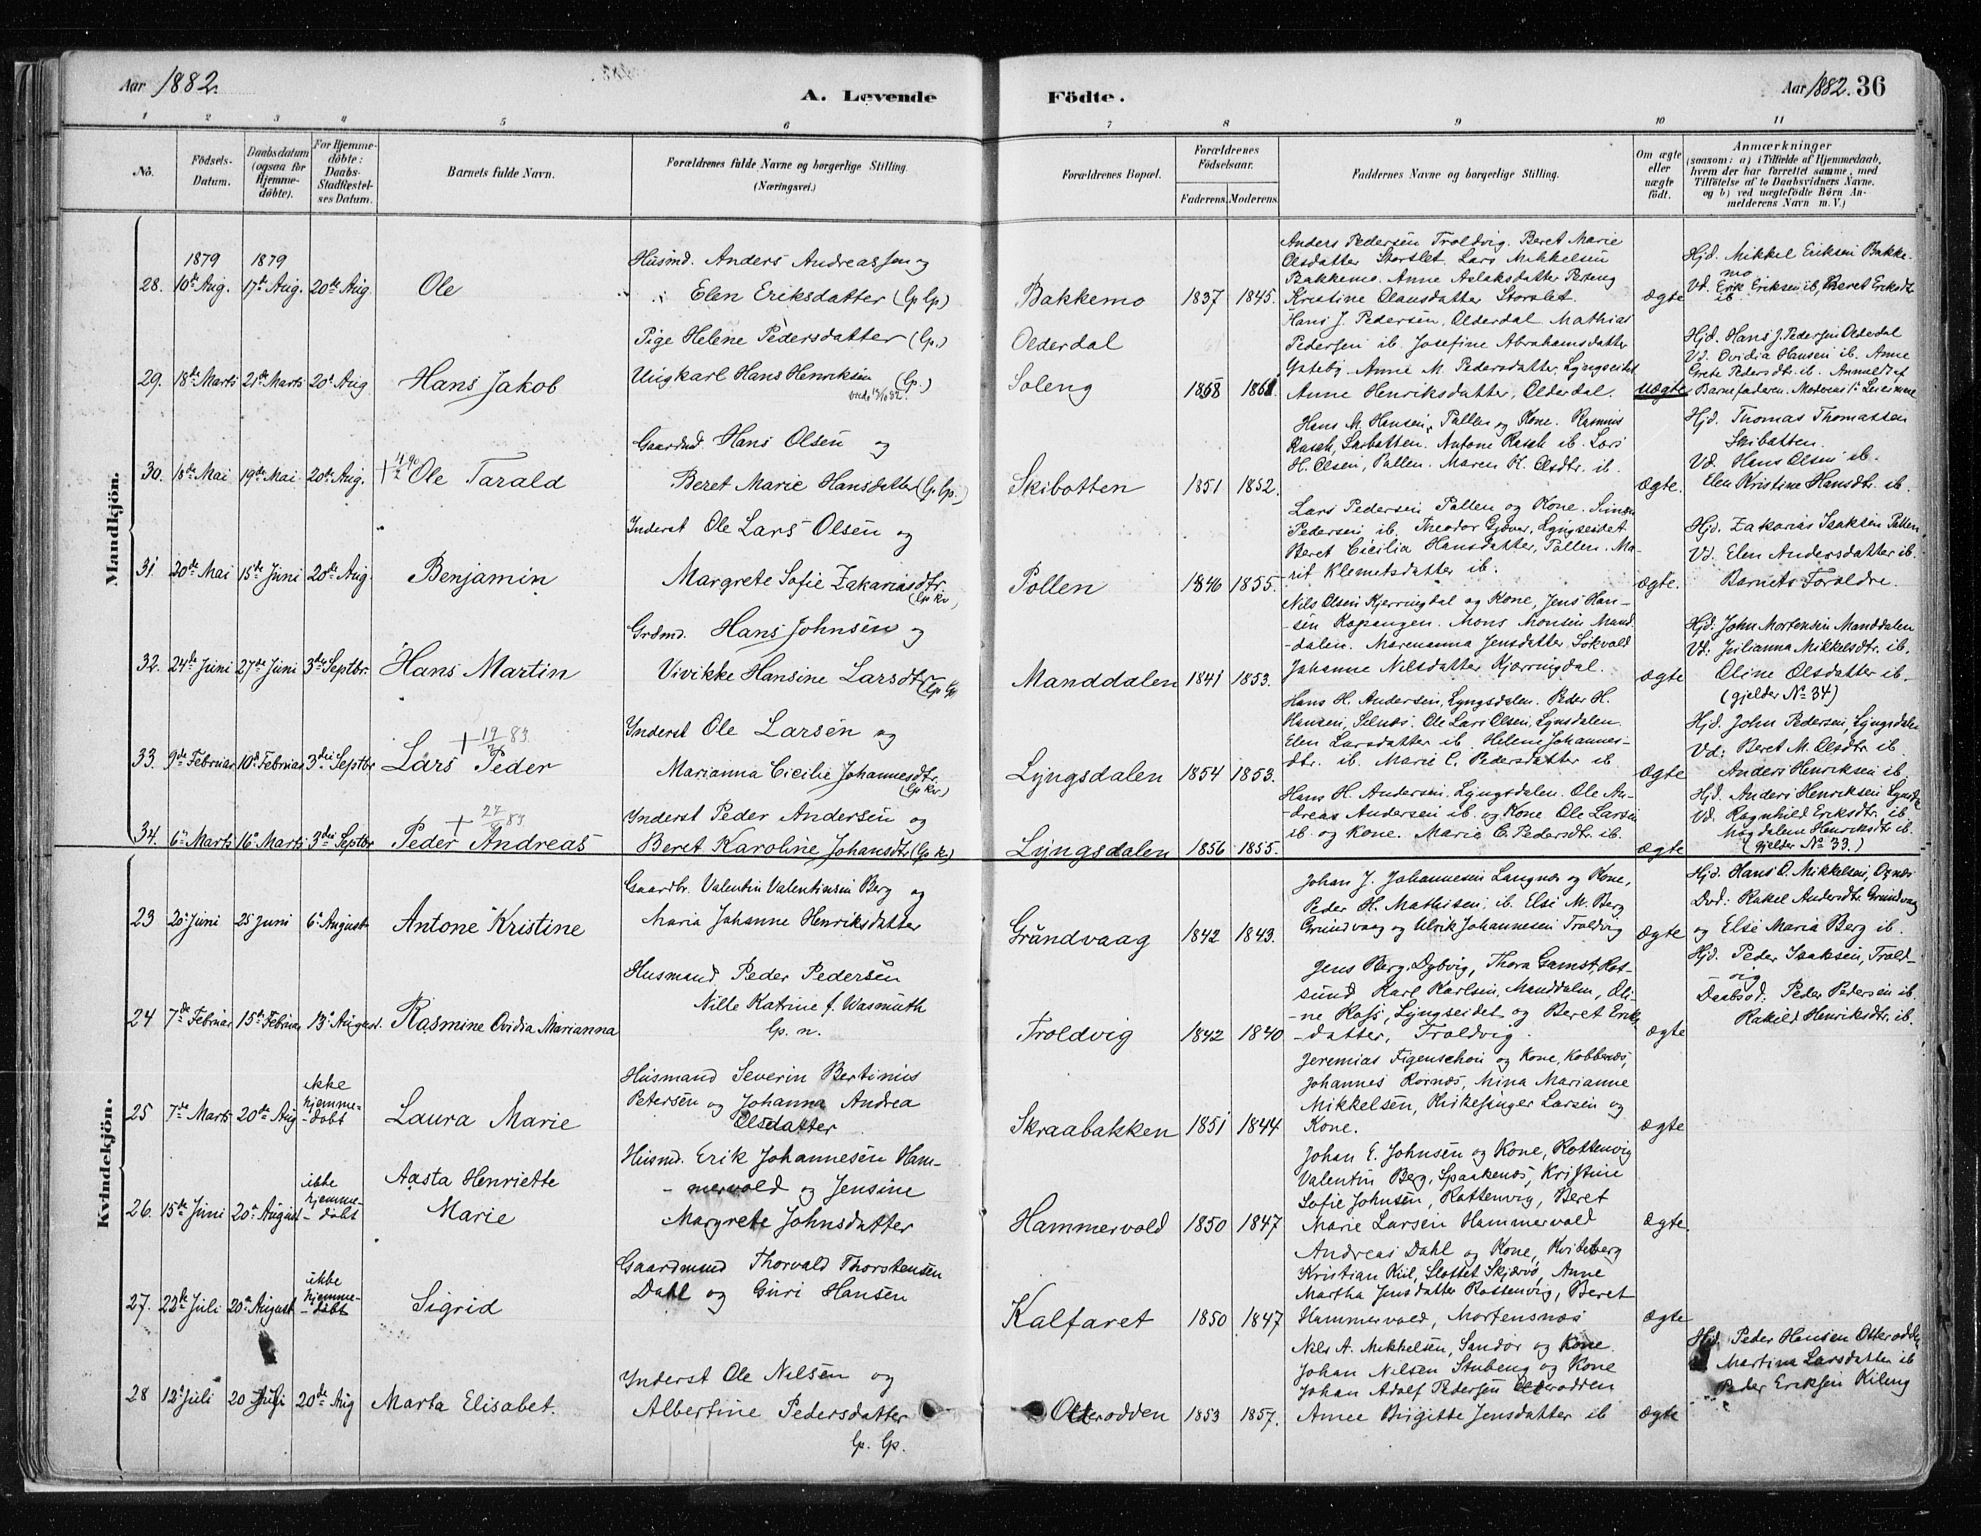 Aar 1882.
A. Levende
Födte.
Aar 1882. 36
1 2 3 4 5 6 7 8 9 10 11
No.
Födsels-
Datum.
Daabsdatum
(ogsaa for
Hjemme-
döbte).
For Hjemme-
döbte:
Daabs-
Stadfæstel-
ses Datum.
Barnets fulde Navn.
Forældrenes fulde Navne og borgerlige Stilling.
(Næringsvei.)
Forældrenes Bopæl.
Forældrenes
Födselsaar.
Faderens. Moderens.
Faddernes Navne og borgerlige Stilling.
Om ægte
eller
uægte
födt.
Anmærkninger
(saasom: a) i Tilfælde af Hjemmedaab,
hvem der har forrettet samme, med
Tilföielse af to Daabsvidners Navne,
og b) ved uægtefödte Börn An-
melderens Navn m. V.)
Mandkjön.
1879 1879
28. 10de Aug. 17de Aug. 20de Aug
Ole
Husmd. Anders Andreassen og
Elen Eriksdatter (Gp Gp)
Bakkemo 1837 1845.
Anders Pedersen Troldvig. Beret Marie
Olsdatter Storslet. Lars Mikkelsen
Bakkemo. Anne Aslaksdatter
Kristine Olausdatter Storslet.
ægte
Hjd. Mikkel Eriksen Bakke-
mo
Vd. Erik Eriksen ib, Beret Eriksdtr
ib
29. 18de Marts 21de Marts 20de Aug
Hans Jakob
Pige Helene Pedersdatter (Gp.)
Ungkarl Hans Henriksen (Gp.)
Olderdal
Soleng 1858 1861
Hans J. Pedersen, Olderdal Mathias
Pedersen ib. Josefine Abrahamsdatter
Gateby. Anne M. Pedersdatter, Lyngseidet
Anne Henriksdatter, Olderdal.
uægte
Hjd. Hans J. Pedersen Olderdal
Vd. Ovidia Hansen ib. Anne
Grete Pedersdtr. ib. Anmeldt af
Barnefaderen. Moderens 1ste Leiermaal
30. 18de Mai 19de Mai 20de Aug.
Ole Tarald
Gaardmd. Hans Olsen og
Beret Marie Hansdatter (Gp. Gp.)
Skibotten 1851 1852.
Hans M. Hansen, Pollen og Kone. Rasmus
Rasch, Skibotten. Antone Rasch ib. Lars
H. Olsen, Pollen. Maren H. Olsdtr. ib.
ægte.
Hjd. Thomas Thomassen
Skibotten.
Vd. Hans Olsen ib.
Elen Kristine Hansdtr. ib.
31. 20de Mai 15de Juni 20de Aug
Benjamin
Inderst Ole Lars Olsen og
Margrete Sofie Zakariasdtr.
(Gp kv)
Pollen 1846 1855.
Lars Pedersen Pollen og Kone. Simon
Pedersen ib. Theodor Gjæver, Lyngseidet
Beret Cicilia Hansdatter, Pollen. Ma-
rit Klemetsdatter ib.
ægte.
Hjd. Zakarias Isaksen Pollen
Vd. Elen Andersdatter ib.
Barnets Forældre.
32. 24de Juni 27de Juni 3die Septbr.
Hans Martin
Grdmd. Hans Johnsen og
Vivikke Hansine Larsdtr. (Gp Gp)
Manddalen 1841 1853.
Nils Olsen Kjerringdal og Kone, Jens Han-
-sen Rapangen. Mons Monsen Mand-
-dalen. Marenanna Jensdatter, Sokvald
Johanne Nilsdatter Kjærringdal.
ægte
Hjd. John Mortensen Manddalen
Vd. Julianna Mikkelsdtr. ib.
Oline Olsdatter ib.
(gjelder No 34)
33. 9de Februar 10de Februar 3die Septbr
+ 19/7 83.
Lars Peder
Inderst Ole Larsen og
Marianna Cicilie Johannesdtr.
(Gp kv)
Lyngsdalen 1854 1853.
Hans H. Andersen, Lyngsdalen. Peder H.
Hansen, Selnæs. Ole Lars Olsen, Lyngsdalen.
Elen Larsdatter ib. Helene Johannes-
dtr. ib. Marie C. Pedersdatter ib
ægte
Hjd. John Pedersen, Lyngsdalen
Vd: Beret M. Olsdtr ib.
Anders Henriksen ib
34. 6te Marts 16de Marts 3die Septbr
Peder Andreas
Inderst Peder Andersen og
Beret Karoline Johansdtr (Gp k.)
Lyngsdalen 1856 1855.
Hans H. Andersen, Lyngsdalen. Ole An-
-dreas Andersen ib. og Kone Ole Larsen
ib og Kone. Marie C. Pedersdtr. ib.
ægte
Hjd. Anders Henriksen Lyngsd.
Vd. Ragnhild Eriksdtr. ib
Magdalene Henriksdtr ib.
(gjelder No 33.)
Kvindekjön.
23 20de Juni 25 Juni 6te August
Antone Kristine
Gaardbr. Valentin Valentinsen Berg og
Maria Johanne Henriksdatter
Grundvaag 1842 1843.
Johan J. Johannesen Langnes og Kone,
Peder H. Mathisen, ib. Else M. Berg
Grundvaag og Ulrik Johannesen Troldvig
ægte
Hjd. Hans O. Mikkelsen, Oxnæs
Dvd: Rakel Andersdtr. Grundvaag
og Else Maria Berg ib.
24 7de Februar 15de Februar 13de August.
Rasmine Ovidia Marianna
Husmand Peder Pedersen
Nille Katrine f. Wasmuth
Gp. n.
Troldvig 1842 1840
Jens Berg, Dybvig, Thora Gamst, Rot-
sund Karl Karlsen, Manddalen, Oli-
-ne Ross, Lyngseidet og Beret Eriks-
-datter, Troldvig.
ægte
Hjd. Peder Isaksen, Trold-
-vig
Daabsvd. Peder Pedersen ib.
Rakild Henriksdtr. ib.
25 7de Marts 20de Aug
ikke
hjemme-
-døbt
Laura Marie
Husmand Severin Bertinius
Petersen og Johanna Andrea
Olsdatter
Skraabakken 1851 1844
Jeremias Figenschou og Kone, Kobbenes,
Johannes Rørnæs, Mina Marianne
Mikkelsen, Kirkesanger Larsen og
Kone.
ægte
26. 15de Juni 20de August
ikke
hjemme-
-døbt
Aasta Henriette
Marie
Husmd. Erik Johannesen Ham-
-mervold og Jensine
Margrete Johnsdatter
Hammervold 1850 1847
Johan E. Johnsen og Kone, Rottenvig
Valentin Berg, Spaakenæs, Kristine
Sofie Johnsen, Rottenvig, Beret
Marie Larsen Hammervold
ægte
27. 22de Juli 20de August
ikke
hjemme-
-døbt
Sigrid
Gaardmand Thorvald Thorstensen
Dahl og Guri Hansen
Kalfaret 1850 1847
Andreas Dahl og Kone, Kviteberg
Kristian Kiil, Slottet Skjærvø, Anne
Martha Jensdatter Rottenvig, Beret
Hammervold, Mortensnæs
ægte
28 12te Juli 20 Juli 20de Aug
Marta Elisabet.
Inderst Ole Nilsen og
Albertine Pedersdatter
Gp. Gp.
Otterodden 1853 1857.
Nils A. Mikkelsen, Sandør og Kone
Johan Nilsen Stubeng og Kone
Johan Adolf Pedersen Otterodden
Anne Birgitte Jensdatter ib
ægte
Hjd. Peder Hansen Otterodden
Martina Larsdatter ib
Peder Eriksen Kileng